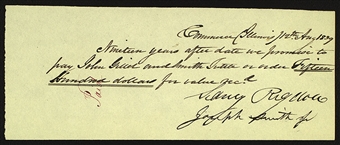 Commerce Illinois 12th Aug 1839
Nineteen years after date we promise to
pay John Gillet and Smith Tuttle or order Fifteen
Hundred dollars for value recd
Sidney Rigdon
Joseph Smith Jr